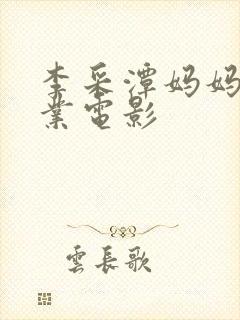 李采潭妈妈
業電影
雲長歌